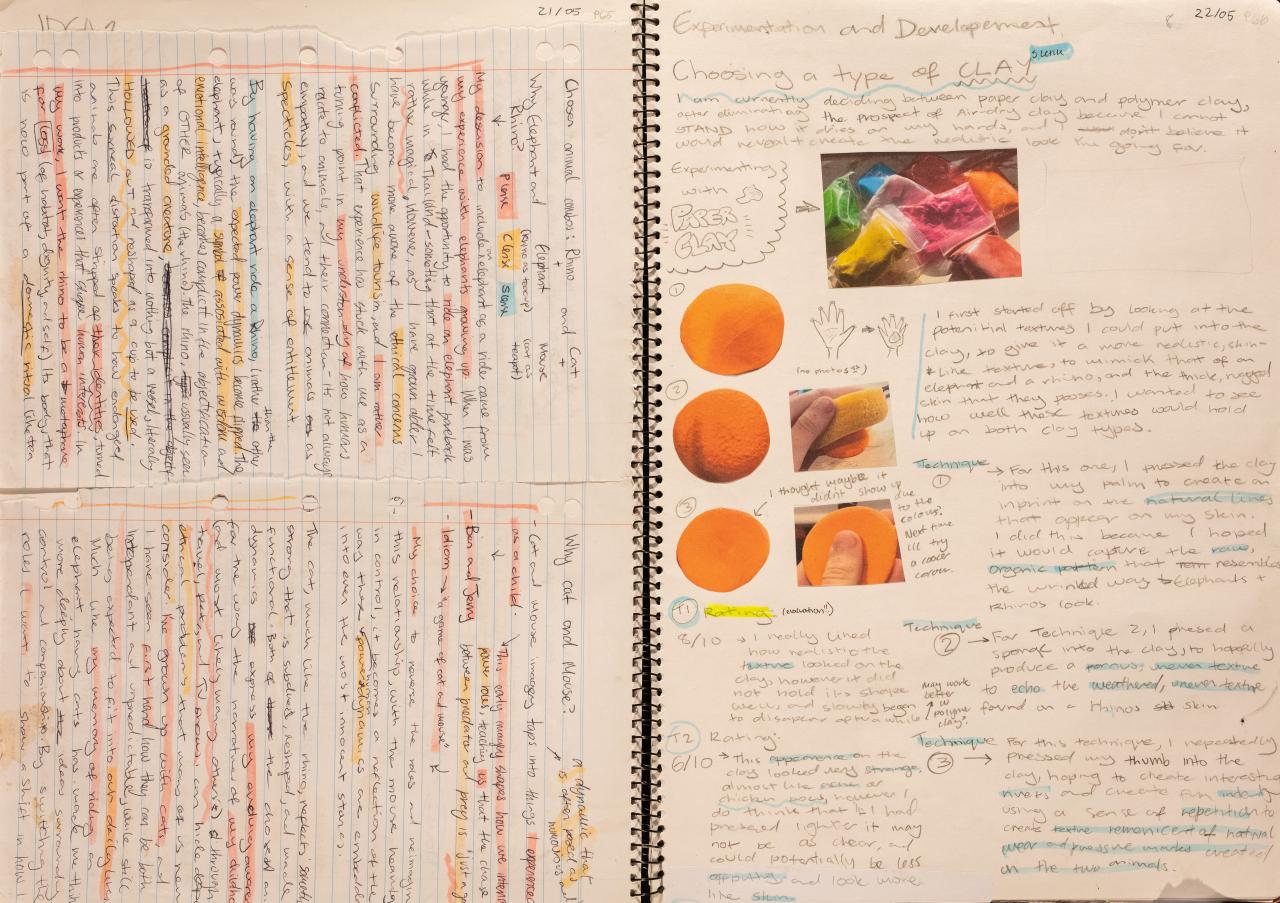 21/05 P65
Chosen animal combos: Rhino and Cat
+ +
Elephant Mouse
(Rhino as teacup) (cat as teapot)
Why Elephant and Rhino?
↓ Please Clense Slense
My descision to include elephant as a ride came from
my experience with elephants growing up. When I was
younger, I had the opportunity to ride an elephant bareback
while in Thailand - something that at the time felt
rather magical, However, as I have grown older I
have become more aware of the ethical concerns
surrounding wildlife tourism and am rather
conflicted. That experience has stuck with me as an
turning point in my understanding of how humans
relate to animals, and their connection. Its not always
empathy, and we tend to use animals as
spectacles, with a sense of entitlement
By having an elephant ride a Rhino, (rather than the other
way round) the expected power dynamics become flipped. The
elephant, typically a symbol of associated with wisdom and
emotional intelligence, becomes complicit in the objectification
of OTHER animals (the rhino). The rhino, usually seen
as a grounded creature,
is transformed into nothing but a vessel, literally
HOLLOWED out and reshaped as a cup to be used.
This surreal distortion speaks to how endangered
animals are often stripped of their identities, turned
into products or ephemeral that shape human interests. In
my work, I want the rhino to be a metaphor
for loss (of habitat, dignity and self). Its body, that
is now part of a domestic ritual like tea
Why cat and Mouse?
A dynamic that is often posed as humorous
- Cat and mouse imagery taps into things I experienced
as a child.
This only really shapes how we
power roles teaching us that the chase
- Ben and Jerry between predator and prey is 'just a
- Idiom → "a game of cat and mouse"
- My choice to reverse the roles and reimagin
this relationship, with the mouse having
in control, it becomes a reflection of the
way these power dynamics are embedde
into even the most innocent stories.
() The cat, much like the rhino, reflects
strong that is subdued, reshaped, and made
functional. Both of the chosen an
dynamics express my evolving awaren
for the way the narrative of my childhoo
(and most likely many others) through
travel, pets, and TV shows, can hide
ethical problems that many of us never
consider. I've grown up with cats, and
I have seen first hand how they can be both
independant and unpredictable, while still
being expected to fit into
Much like the my memory of riding an
elephant, having cats has made me th
more deeply about ideas surroundi
control and companionship. By switching the
roles I want to show a shift in how I
22/05 P66
Experimentation and Developement
Choosing a type of CLAY
Slense
I am currently deciding between paper clay and polymer clay,
after eliminating the prospect of Air-dry clay because I cannot
STAND how it dries on my hands, and I don't believe it
would reveal + create the realistic look I'm going for.
Experimenting
with
PAPER
CLAY
①
(no photos)
②
③
I thought maybe it
didn't show up due
to the
colour.
Next time
I'll try
a cooler
colour.
I first started off by looking at the
potenitial textures I could put into the
clay, to give it a more realistic, skin-
like texture, to mimick that of an
elephant and a rhino, and the thick, rugged
skin that they posses. I wanted to see
how well these textures would hold
up on both clay types.
Technique ① → For this one, I pressed the clay
into my palm to create an
inprint on the natural lines
that appear on my skin.
I did this because I hoped
it would capture the raw,
organic pattern that resembles
the wrinkled way Elephants +
Rhinos look.
T1 Rating (evaluation!)
8/10 → I really liked
how realistic the
texture looked on the
clay, however it did
not hold its shape
well, and slowly began
to disapear after a while
may work
better
w
polymer
clay?
Technique ② → For Technique 2, I pressed a
sponge into the clay, to hopefully
produce a porous, uneven texture
to echo the weathered, uneven texture
found on a Rhinos skin
T2 Rating:
6/10 → This appearence on the
clay looked very strange,
almost like acne or
chicken pox, however I
do think that if I had
pressed lighter it may
not be as clear, and
could potentially be less
offputting and look more
like skin
Technique ③ → For this technique, I repeatedly
pressed my thumb into the
clay, hoping to create interesting
rivets and create fun
using a sense of repetition to
create texture remenicent of natural
wear and pressure marks created
on the two animals.